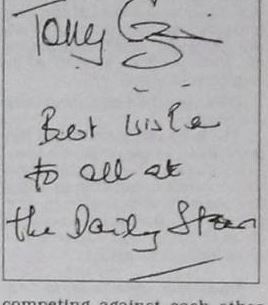 Tony
Best wishes
to all at
the Daily Star
competing against each other